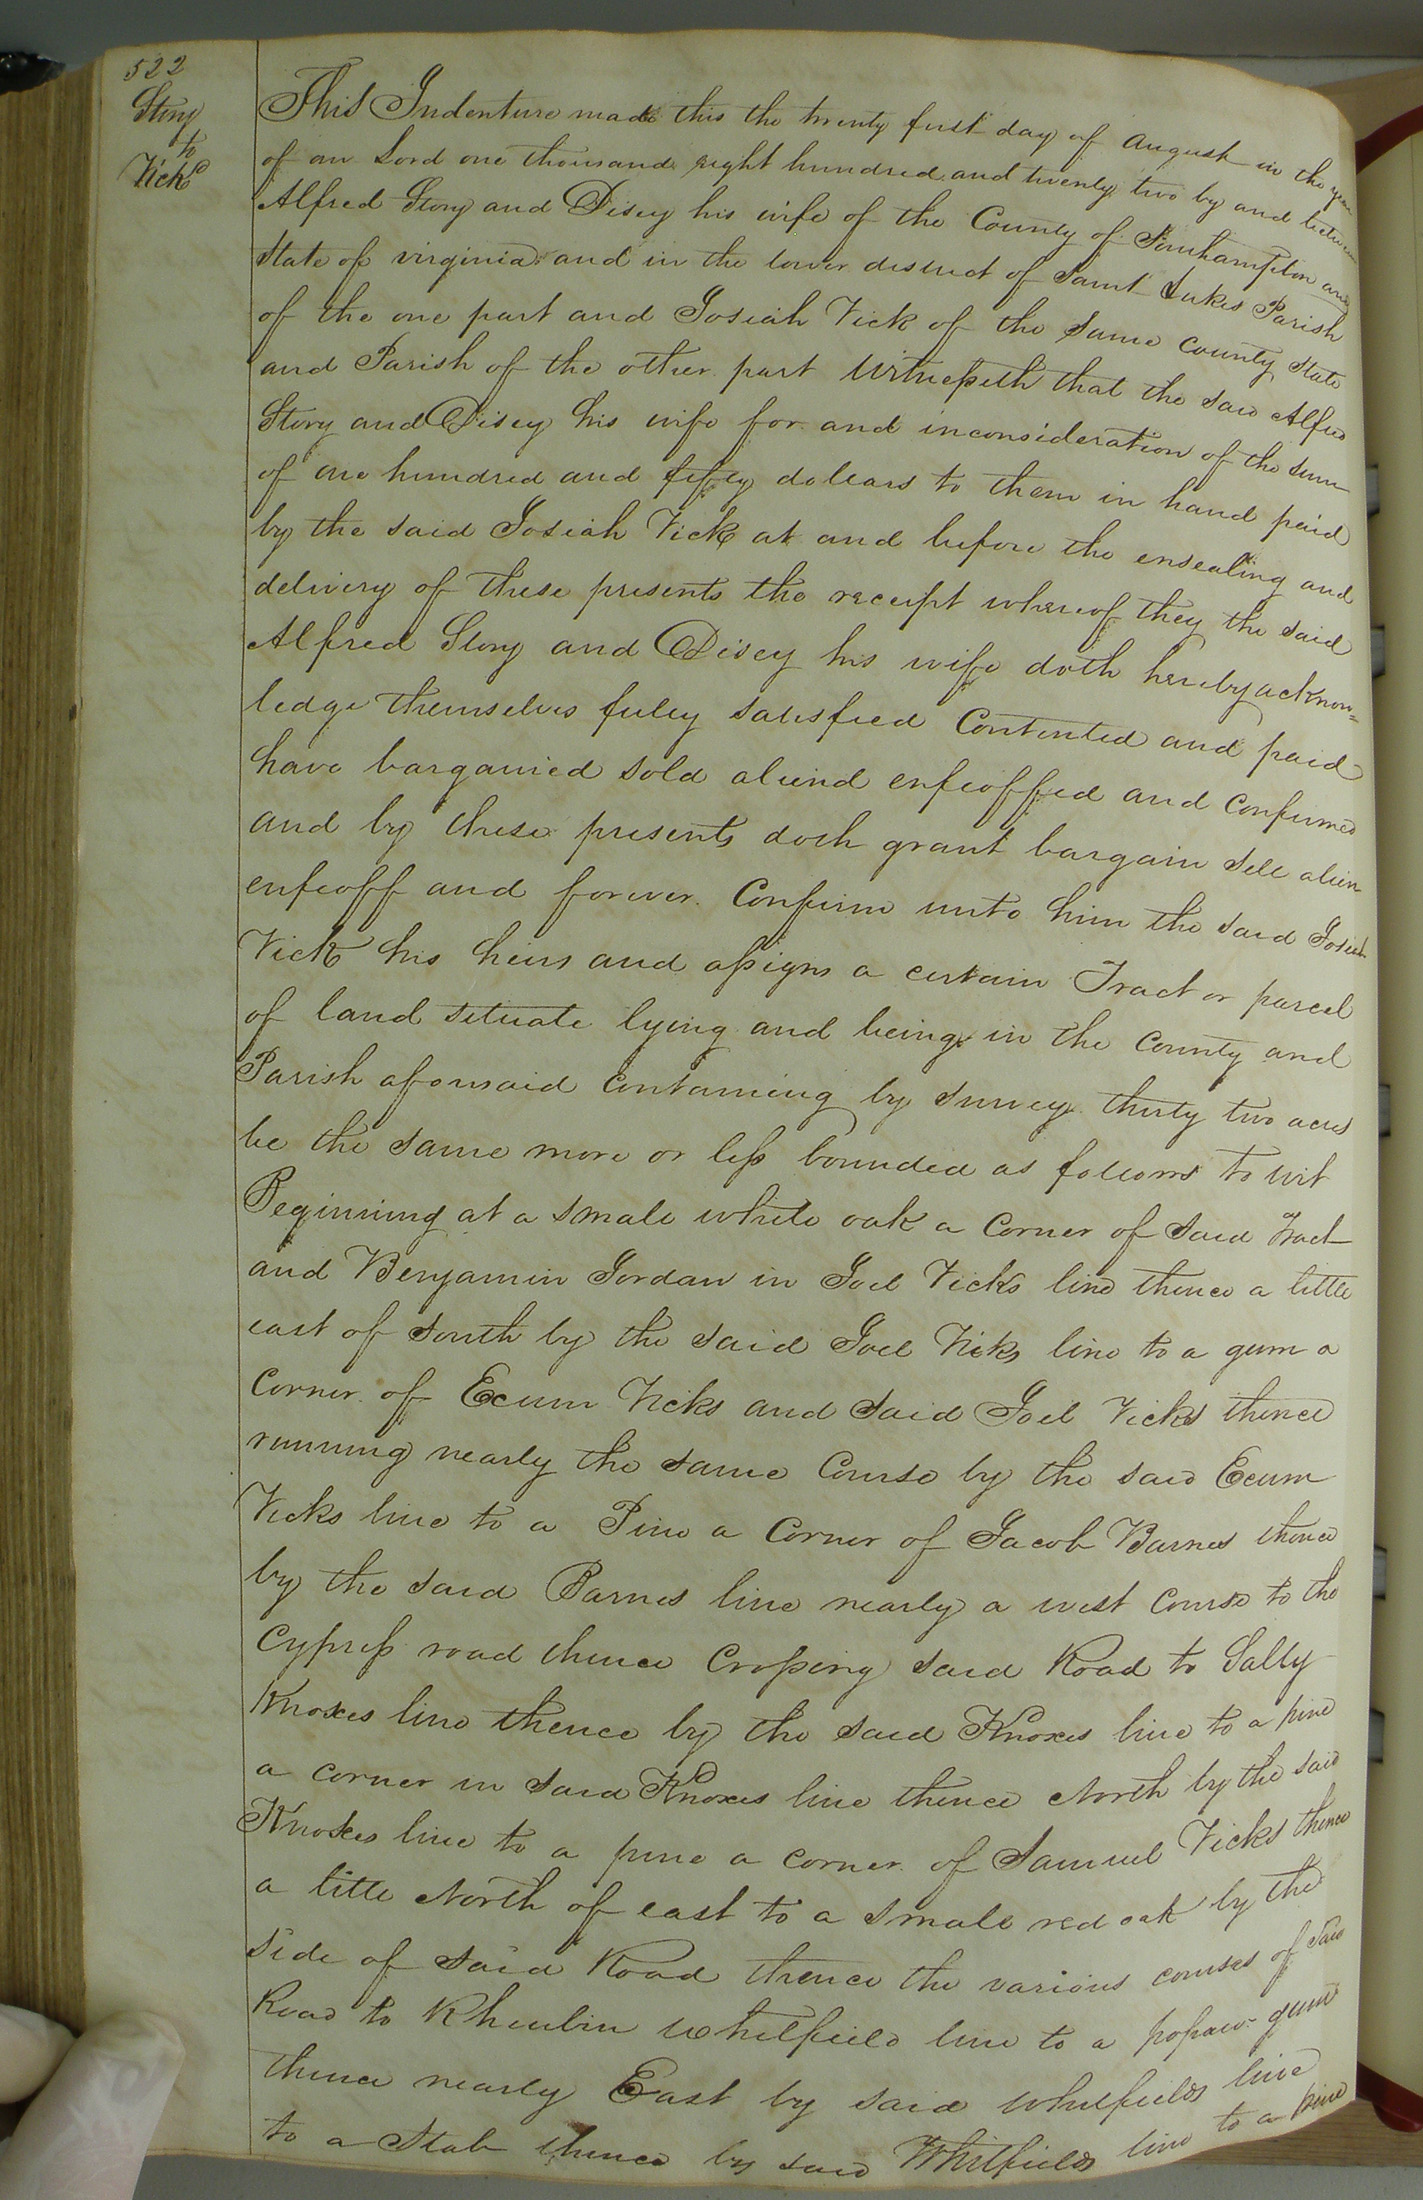 522
Story
to
Vick
This Indenture made this the twenty first day of August in the year
of our Lord one thousand eight hundred and twenty two by and between
Alfred Story and Disey his wife of the County of Southampton and
State of virginia and in the lower district of Saint Lukes Parish
of the one part and Josiah Vick of the same County State
and Parish of the other part Witnesseth that the said Alfred
Story and Disey his wife for and inconsideration of the sum
of one hundred and fifty dollars to them in hand paid
by the said Josiah Vick at and before the ensealing and
delivery of these presents the receipt whereof they the said
Alfred Story and Disey his wife doth hereby acknow=
ledge themselves fully satisfied Contented and paid
have bargained sold aliend enfeoffed and confirmed
and by these presents doth grant bargain sell alien
enfeoff and forever Confirm unto him the said Josiah
Vick his heirs and assigns a certain Tract or parcel
of land situate lying and being in the County and
Parish aforesaid containing by survey thirty two acres
be the same more or less bounded as follows to wit
Beginning at a small white oak a Corner of said Tract
and Benjamin Jordan in Joel Vicks line thence a little
east of south by the said Joel Vicks line to a gum a
Corner of Ecum Vicks and said Joel Vicks thence
running nearly the same Course by the said Ecum
Vicks line to a Pine a Corner of Jacob Barnes thence
by the said Barnes line nearly a west Course to the
Cypress road thence Crossing said Road to Sally
Knoxes line thence by the said Knoxes line to a pine
a corner in said Knoxes line thence North by the said
Knoxes line to a pine a corner of Samuel Vicks thence
a little North of east to a small red oak by the
side of said Road thence the various courses of said
Road to Rheubin Whitfield line to a popaw gum
thence nearly East by said Whitfields line
to a Stab thence by said Whitfields line to a pine